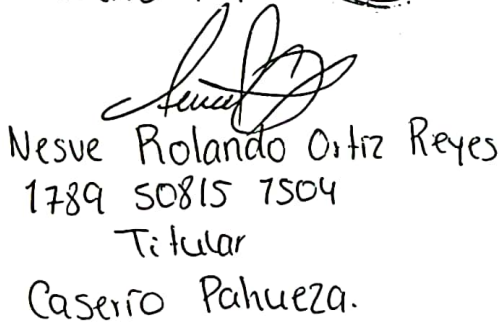 Nesve Rolando Ortiz Reyes
1789 50815 1504
Titular
Caserío Pahueza.